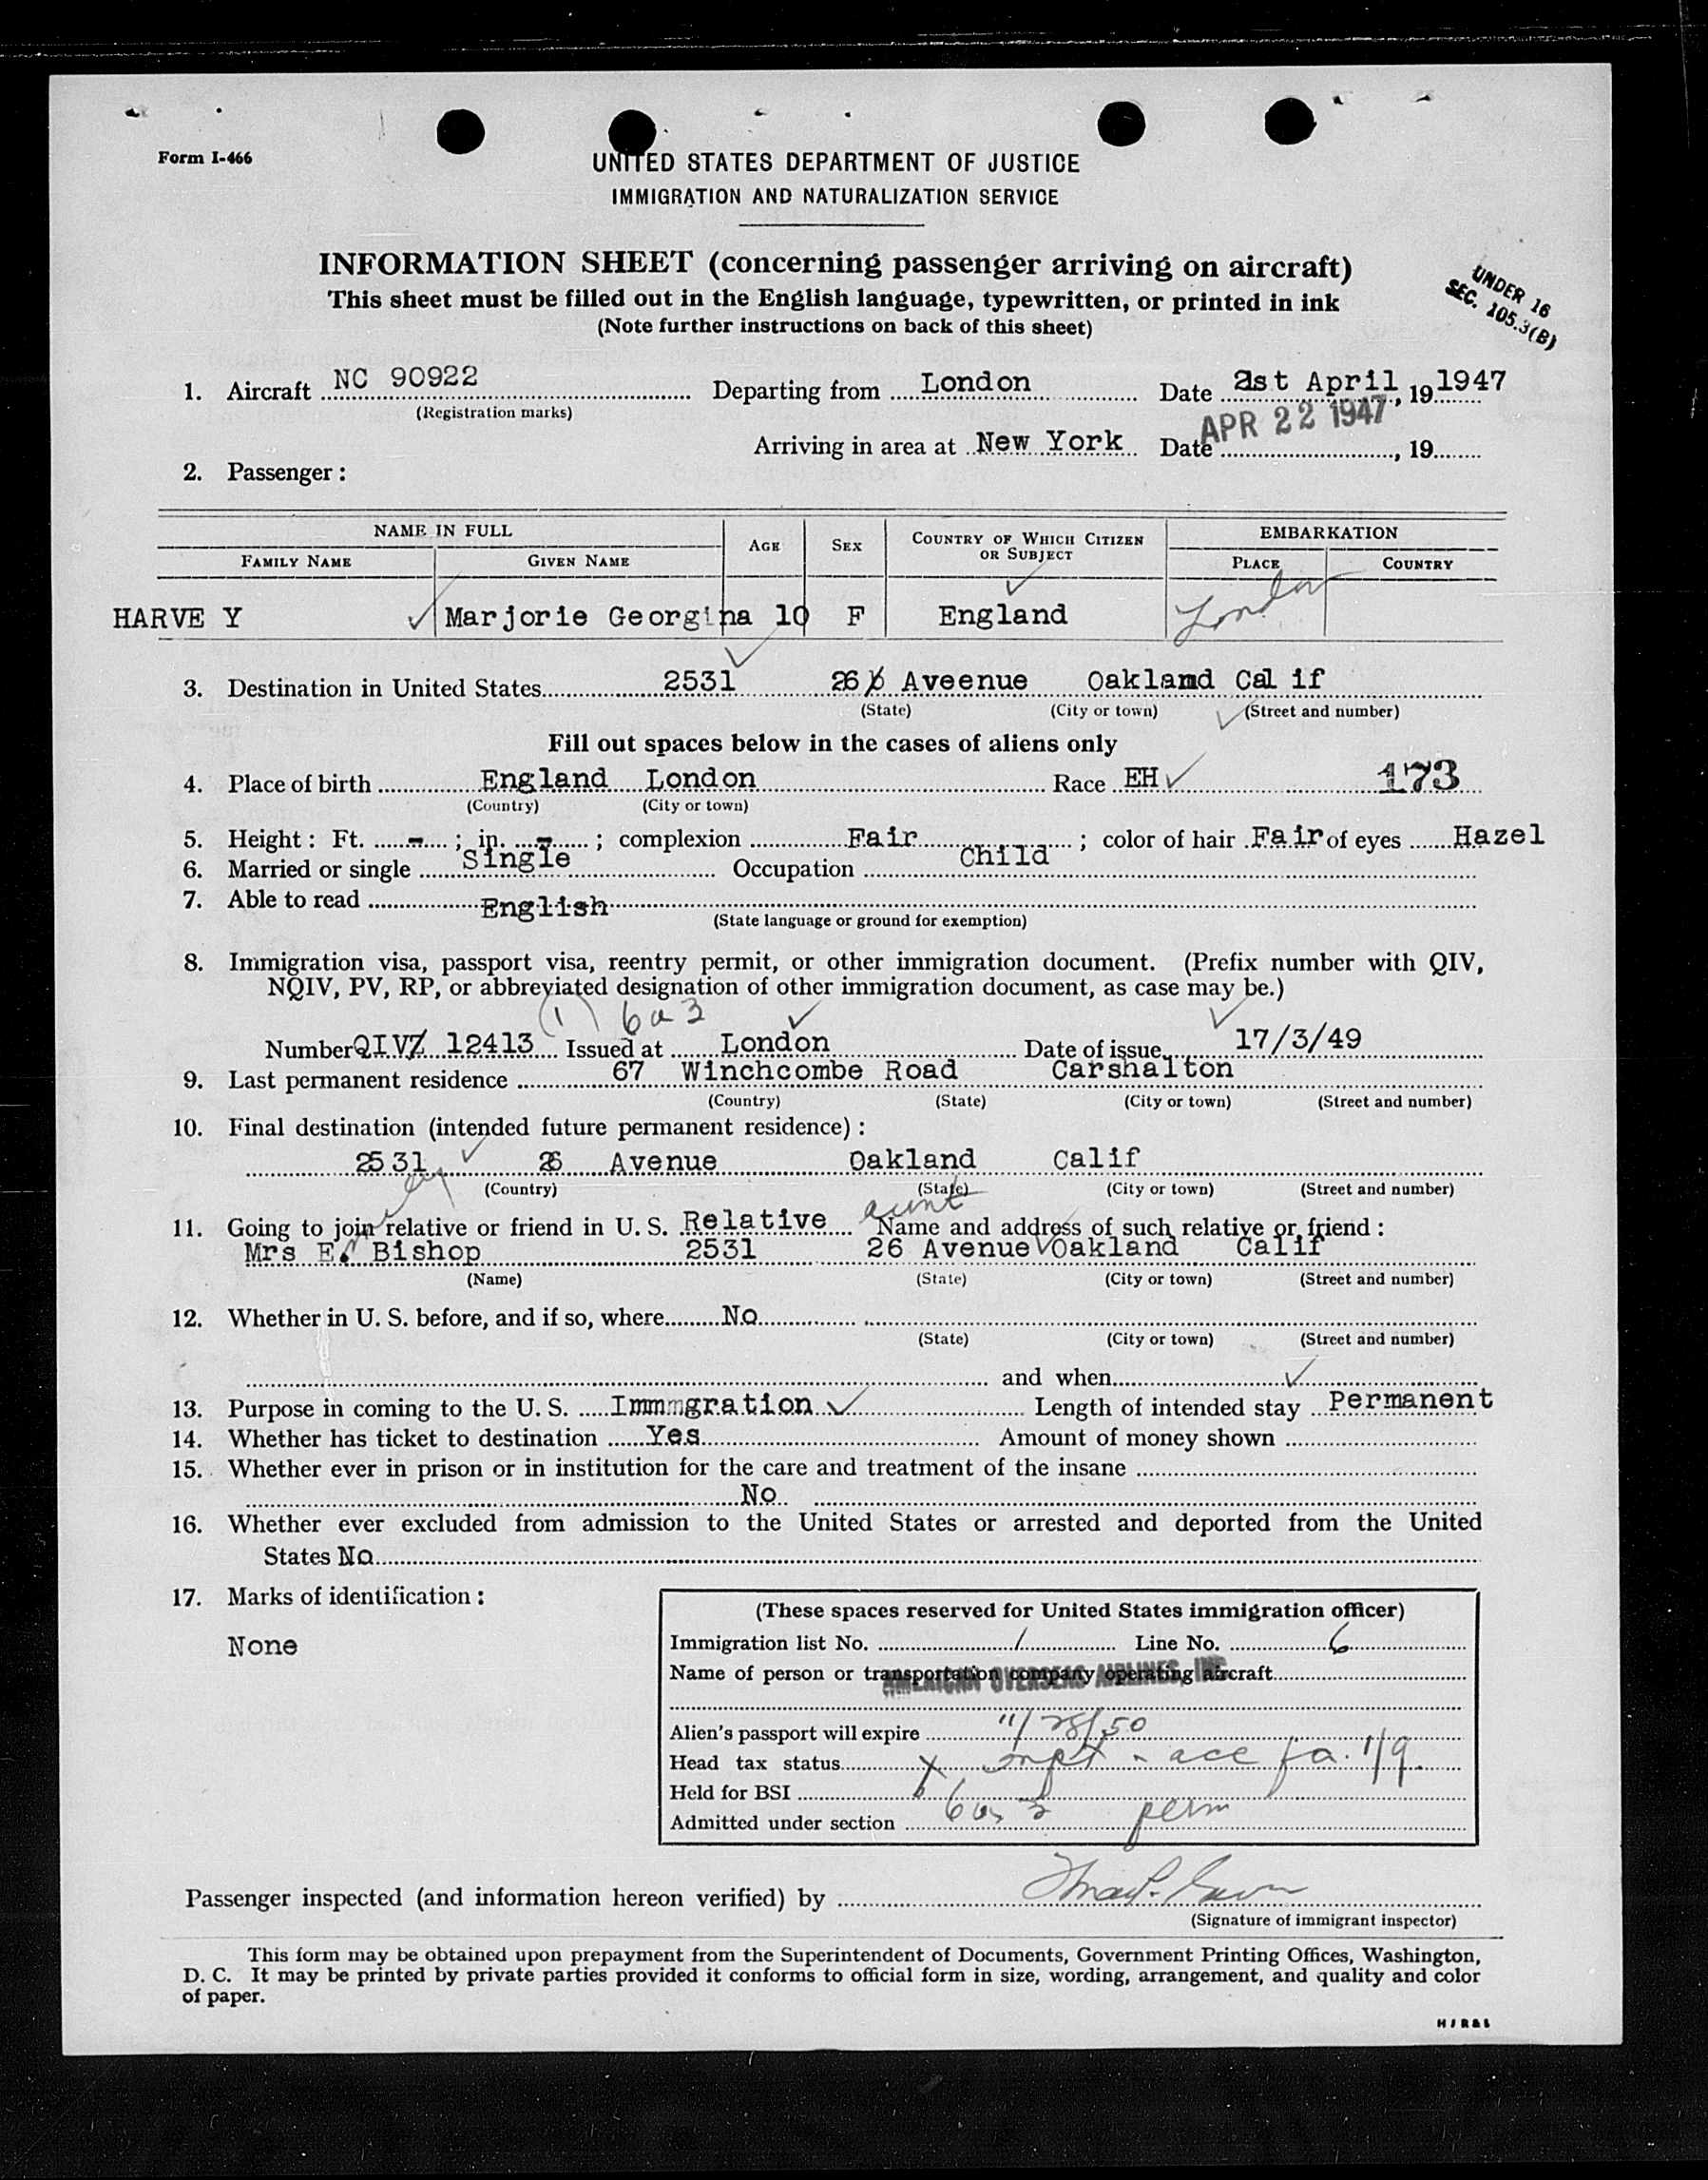 Form I-466
UNITED STATES DEPARTMENT OF JUSTICE
IMMIGRATION AND NATURALIZATION SERVICE
INFORMATION SHEET (concerning passenger arriving on aircraft)
This sheet must be filled out in the English language, typewritten, or printed in ink
(Note further instructions on back of this sheet)
UNDER 16
SEC. 105.3(B)
1. Aircraft NC 90922 Departing from London Date 21st April, 19 1947
(Registration marks)
Arriving in area at New York Date APR 22 1947, 19
2. Passenger:
NAME IN FULL AGE SEX COUNTRY OF WHICH CITIZEN OR SUBJECT EMBARKATION
FAMILY NAME GIVEN NAME PLACE COUNTRY
HARVE Y Marjorie Georgina 10 F England London
3. Destination in United States 2531 26 Aveenue Oakland Cal if
(State) (City or town) (Street and number)
Fill out spaces below in the cases of aliens only
4. Place of birth England London Race EH 173
(Country) (City or town)
5. Height: Ft. - ; in. - ; complexion Fair ; color of hair Fair of eyes Hazel
6. Married or single Single Occupation Child
7. Able to read English
(State language or ground for exemption)
8. Immigration visa, passport visa, reentry permit, or other immigration document. (Prefix number with QIV,
NQIV, PV, RP, or abbreviated designation of other immigration document, as case may be.)
(1) 6a3
Number QIV 12413 Issued at London Date of issue 17/3/49
9. Last permanent residence 67 Winchcombe Road Carshalton
(Country) (State) (City or town) (Street and number)
10. Final destination (intended future permanent residence):
2531 26 Avenue Oakland Calif
(Country) (State) (City or town) (Street and number)
aunt
11. Going to join relative or friend in U. S. Relative Name and address of such relative or friend:
Mrs E. Bishop 2531 26 Avenue Oakland Calif
(Name) (State) (City or town) (Street and number)
12. Whether in U. S. before, and if so, where No
(State) (City or town) (Street and number)
and when
13. Purpose in coming to the U. S. Immmgration Length of intended stay Permanent
14. Whether has ticket to destination Yes Amount of money shown
15. Whether ever in prison or in institution for the care and treatment of the insane
No
16. Whether ever excluded from admission to the United States or arrested and deported from the United
States No
17. Marks of identification:
None
(These spaces reserved for United States immigration officer)
Immigration list No. 1 Line No. 6
Name of person or transportation company operating aircraft
AMERICAN OVERSEAS AIRLINES, INC
Alien's passport will expire 11/28/50
Head tax status
Held for BSI
Admitted under section 6a3 perm
Passenger inspected (and information hereon verified) by
(Signature of immigrant inspector)
This form may be obtained upon prepayment from the Superintendent of Documents, Government Printing Offices, Washington,
D. C. It may be printed by private parties provided it conforms to official form in size, wording, arrangement, and quality and color
of paper.